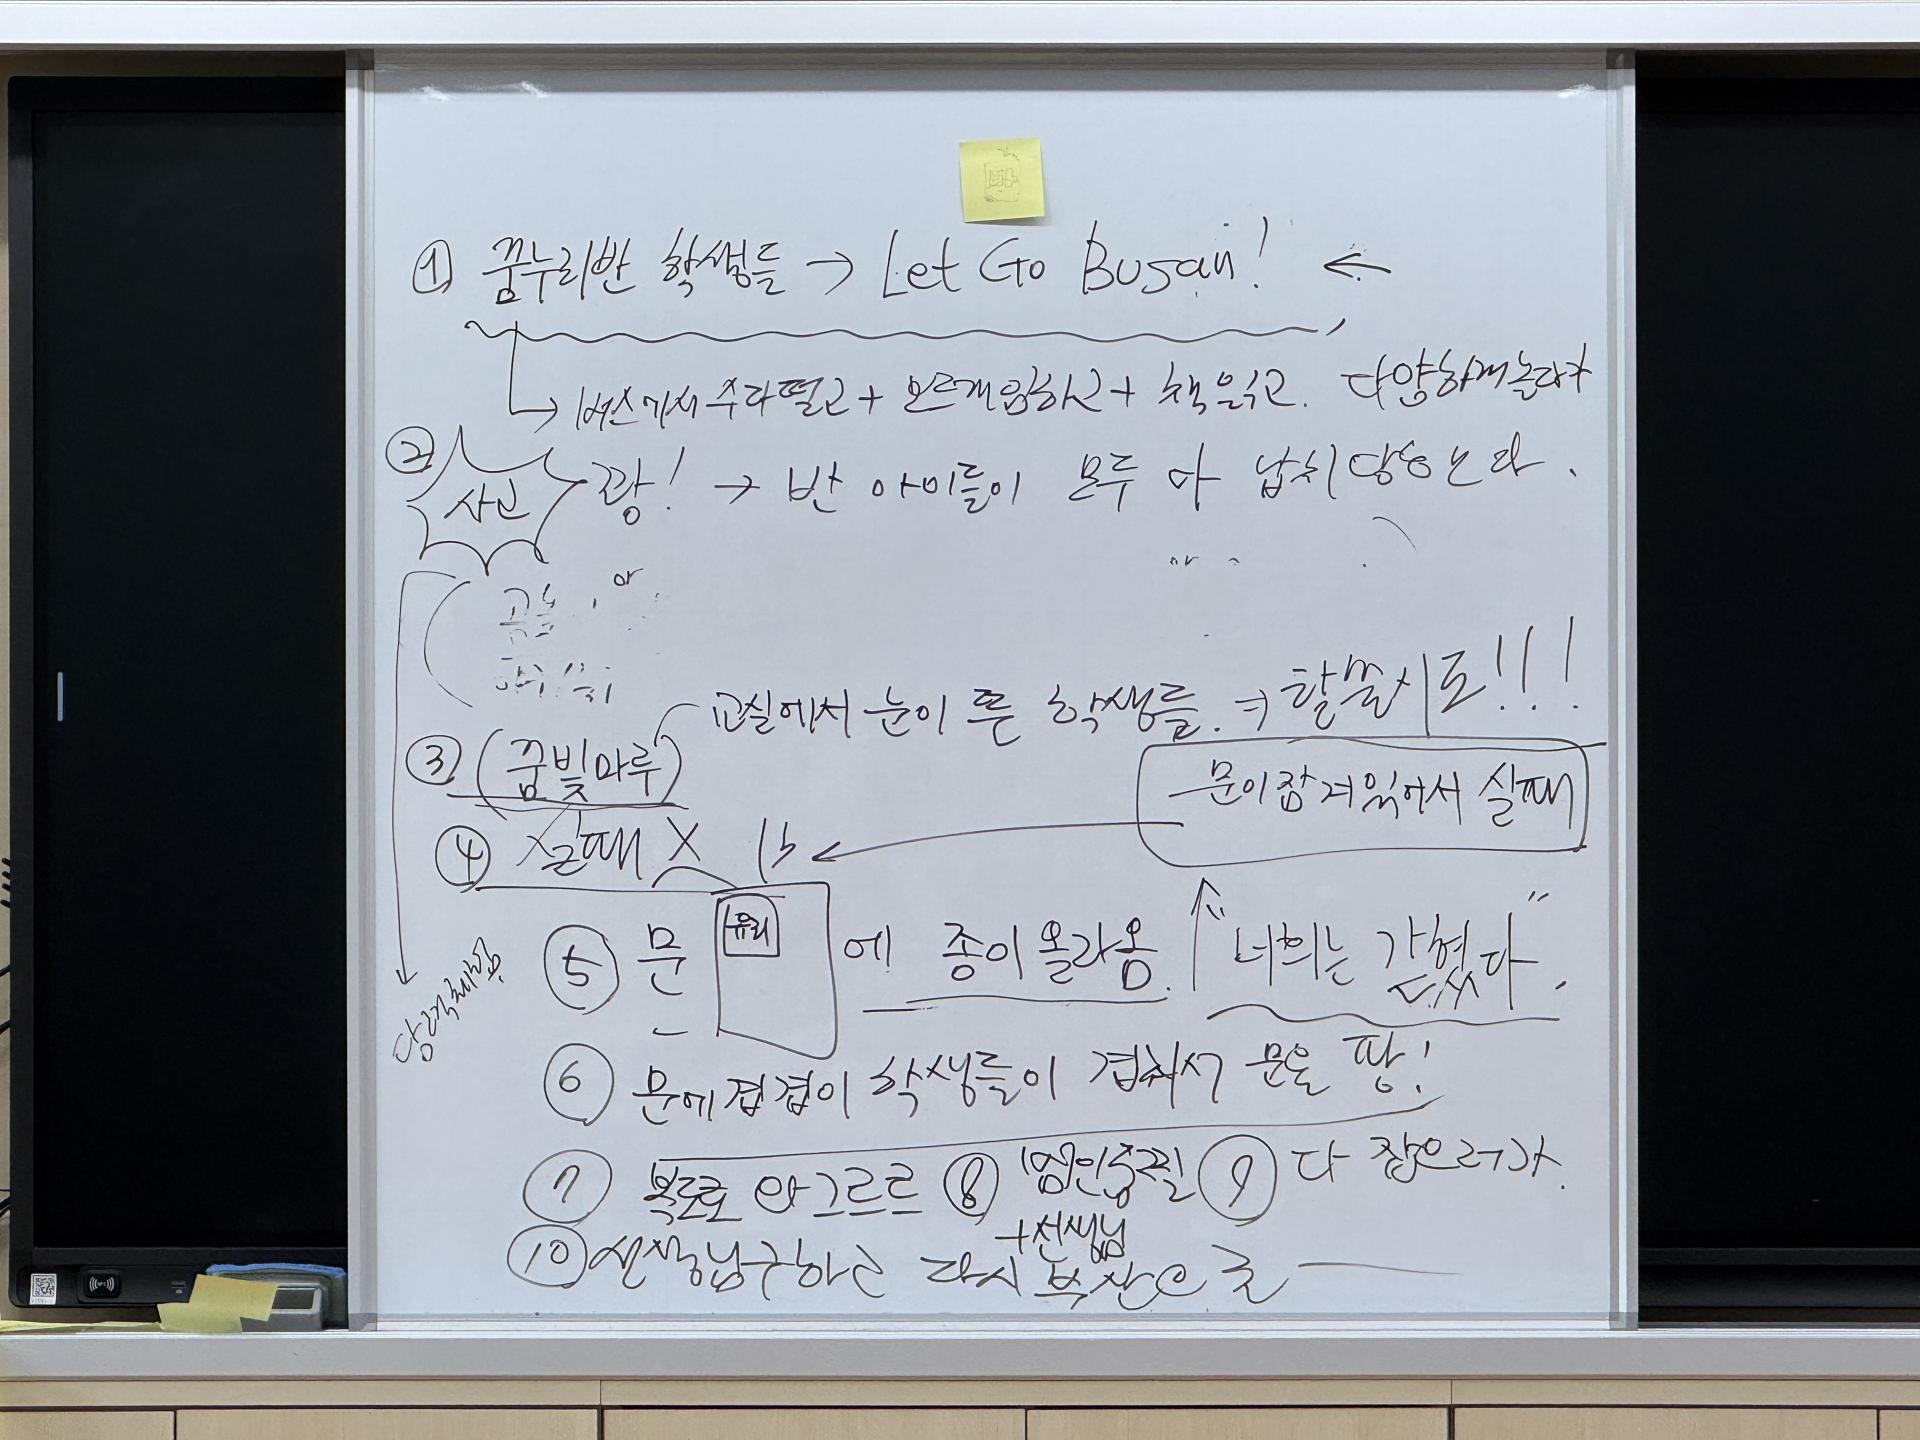 ① 꿈누리반 학생들 → Let Go Busan! ←
→ 버스에서 수다떨고 + 보드게임하고 + 책읽고. 다양하게놀다가
② 사고 쾅! → 반 아이들이 모두 다 납치당한다.
or
교실에서 눈이 뜬 학생들. → 탈출시도!!!
③ (꿈빛마루)
문이잠겨있어서 실패
④ 실패 X
⑤ 문 유리 에 종이올라옴. "너희는 갇혔다".
⑥ 문에겹겹이 학생들이 겹쳐서 문을 쾅!
⑦ 복도로 와그르르 ⑧ 범인충질 ⑨ 다 잡으러가.
+선생님
⑩ 선생님구하고 다시 부산으로